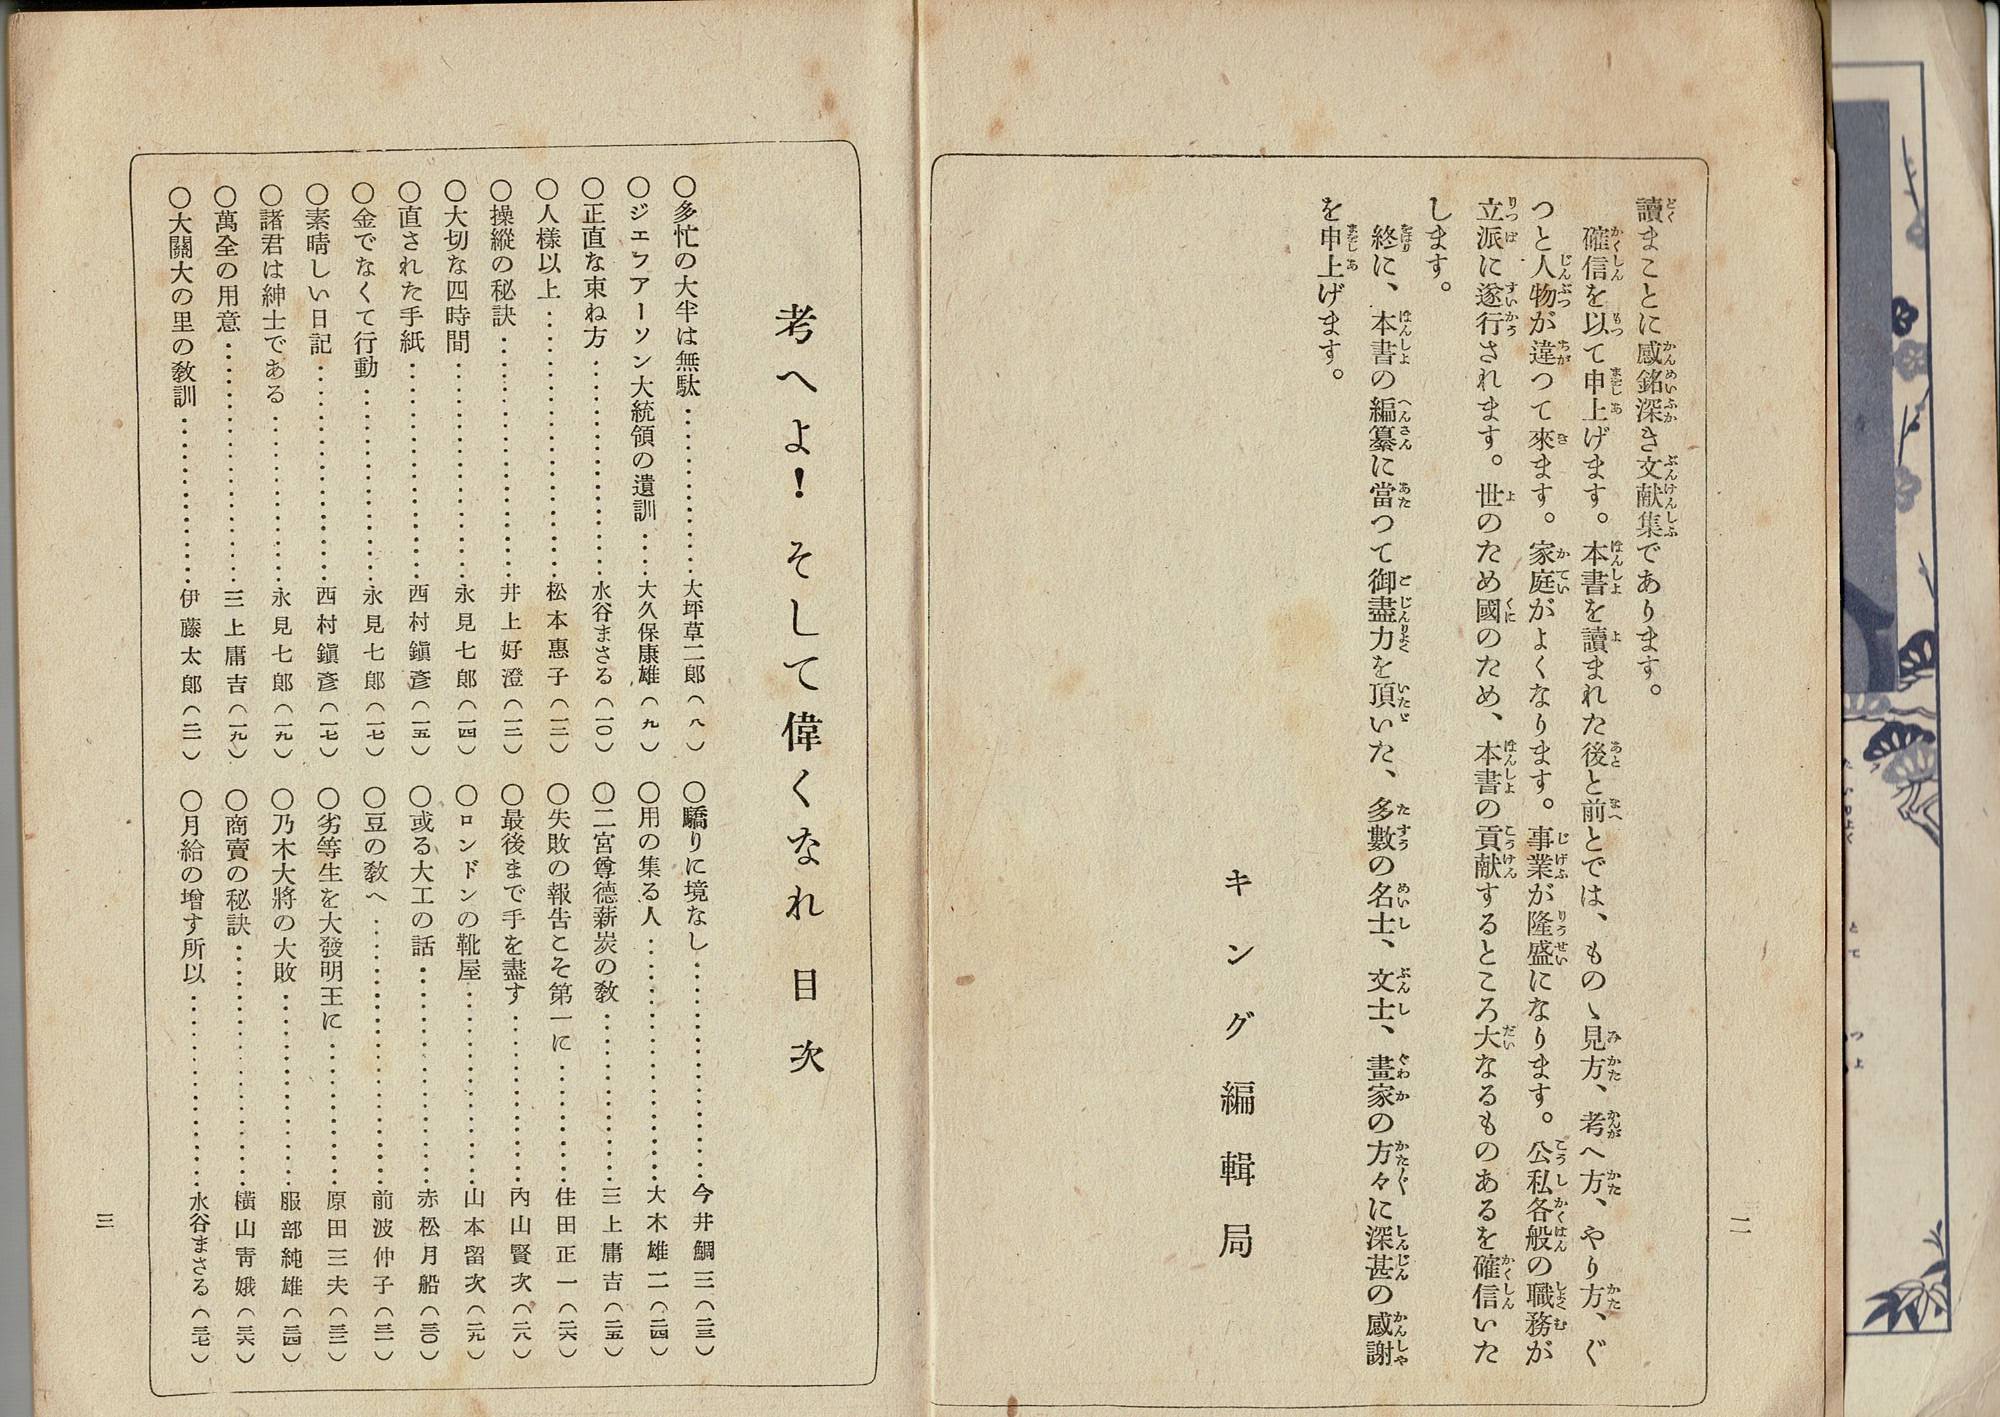 讀まことに感銘深き文献集であります。
確信を以て申上げます。本書を讀まれた後と前とでは、ものゝ見方、考へ方、やり方、ぐ
つと人物が違つて來ます。家庭がよくなります。事業が隆盛になります。公私各般の職務が
立派に遂行されます。世のため國のため、本書の貢献するところ大なるものあるを確信いた
します。
終に、本書の編纂に當つて御盡力を頂いた、多數の名士、文士、畫家の方々に深甚の感謝
を申上げます。
キング編輯局
二
考へよ!そして偉くなれ 目次
○多忙の大半は無駄……………大坪草二郎(八)
○ジエフアーソン大統領の遺訓……大久保康雄(九)
○正直な束ね方……………水谷まさる(一〇)
○人様以上……………松本惠子(一二)
○操縱の秘訣……………井上好澄(一三)
○大切な四時間……………永見七郞(一四)
○直された手紙……………西村鎭彥(一五)
○金でなくて行動……………永見七郞(一七)
○素晴しい日記……………西村鎭彥(一七)
○諸君は紳士である……………永見七郞(一九)
○萬全の用意……………三上庸吉(一九)
○大關大の里の敎訓……………伊藤太郞(二一)
○驕りに境なし……………今井鯛三(二三)
○用の集る人……………大木雄二(二四)
○二宮尊德薪炭の敎……………三上庸吉(二五)
○失敗の報告こそ第一に……………住田正一(二六)
○最後まで手を盡す……………內山賢次(二八)
○ロンドンの靴屋……………山本留次(二九)
○或る大工の話……………赤松月船(三〇)
○豆の敎へ……………前波仲子(三一)
○劣等生を大發明王に……………原田三夫(三二)
○乃木大將の大敗……………服部純雄(三四)
○商賣の秘訣……………橫山靑娥(三六)
○月給の增す所以……………水谷まさる(三七)
三